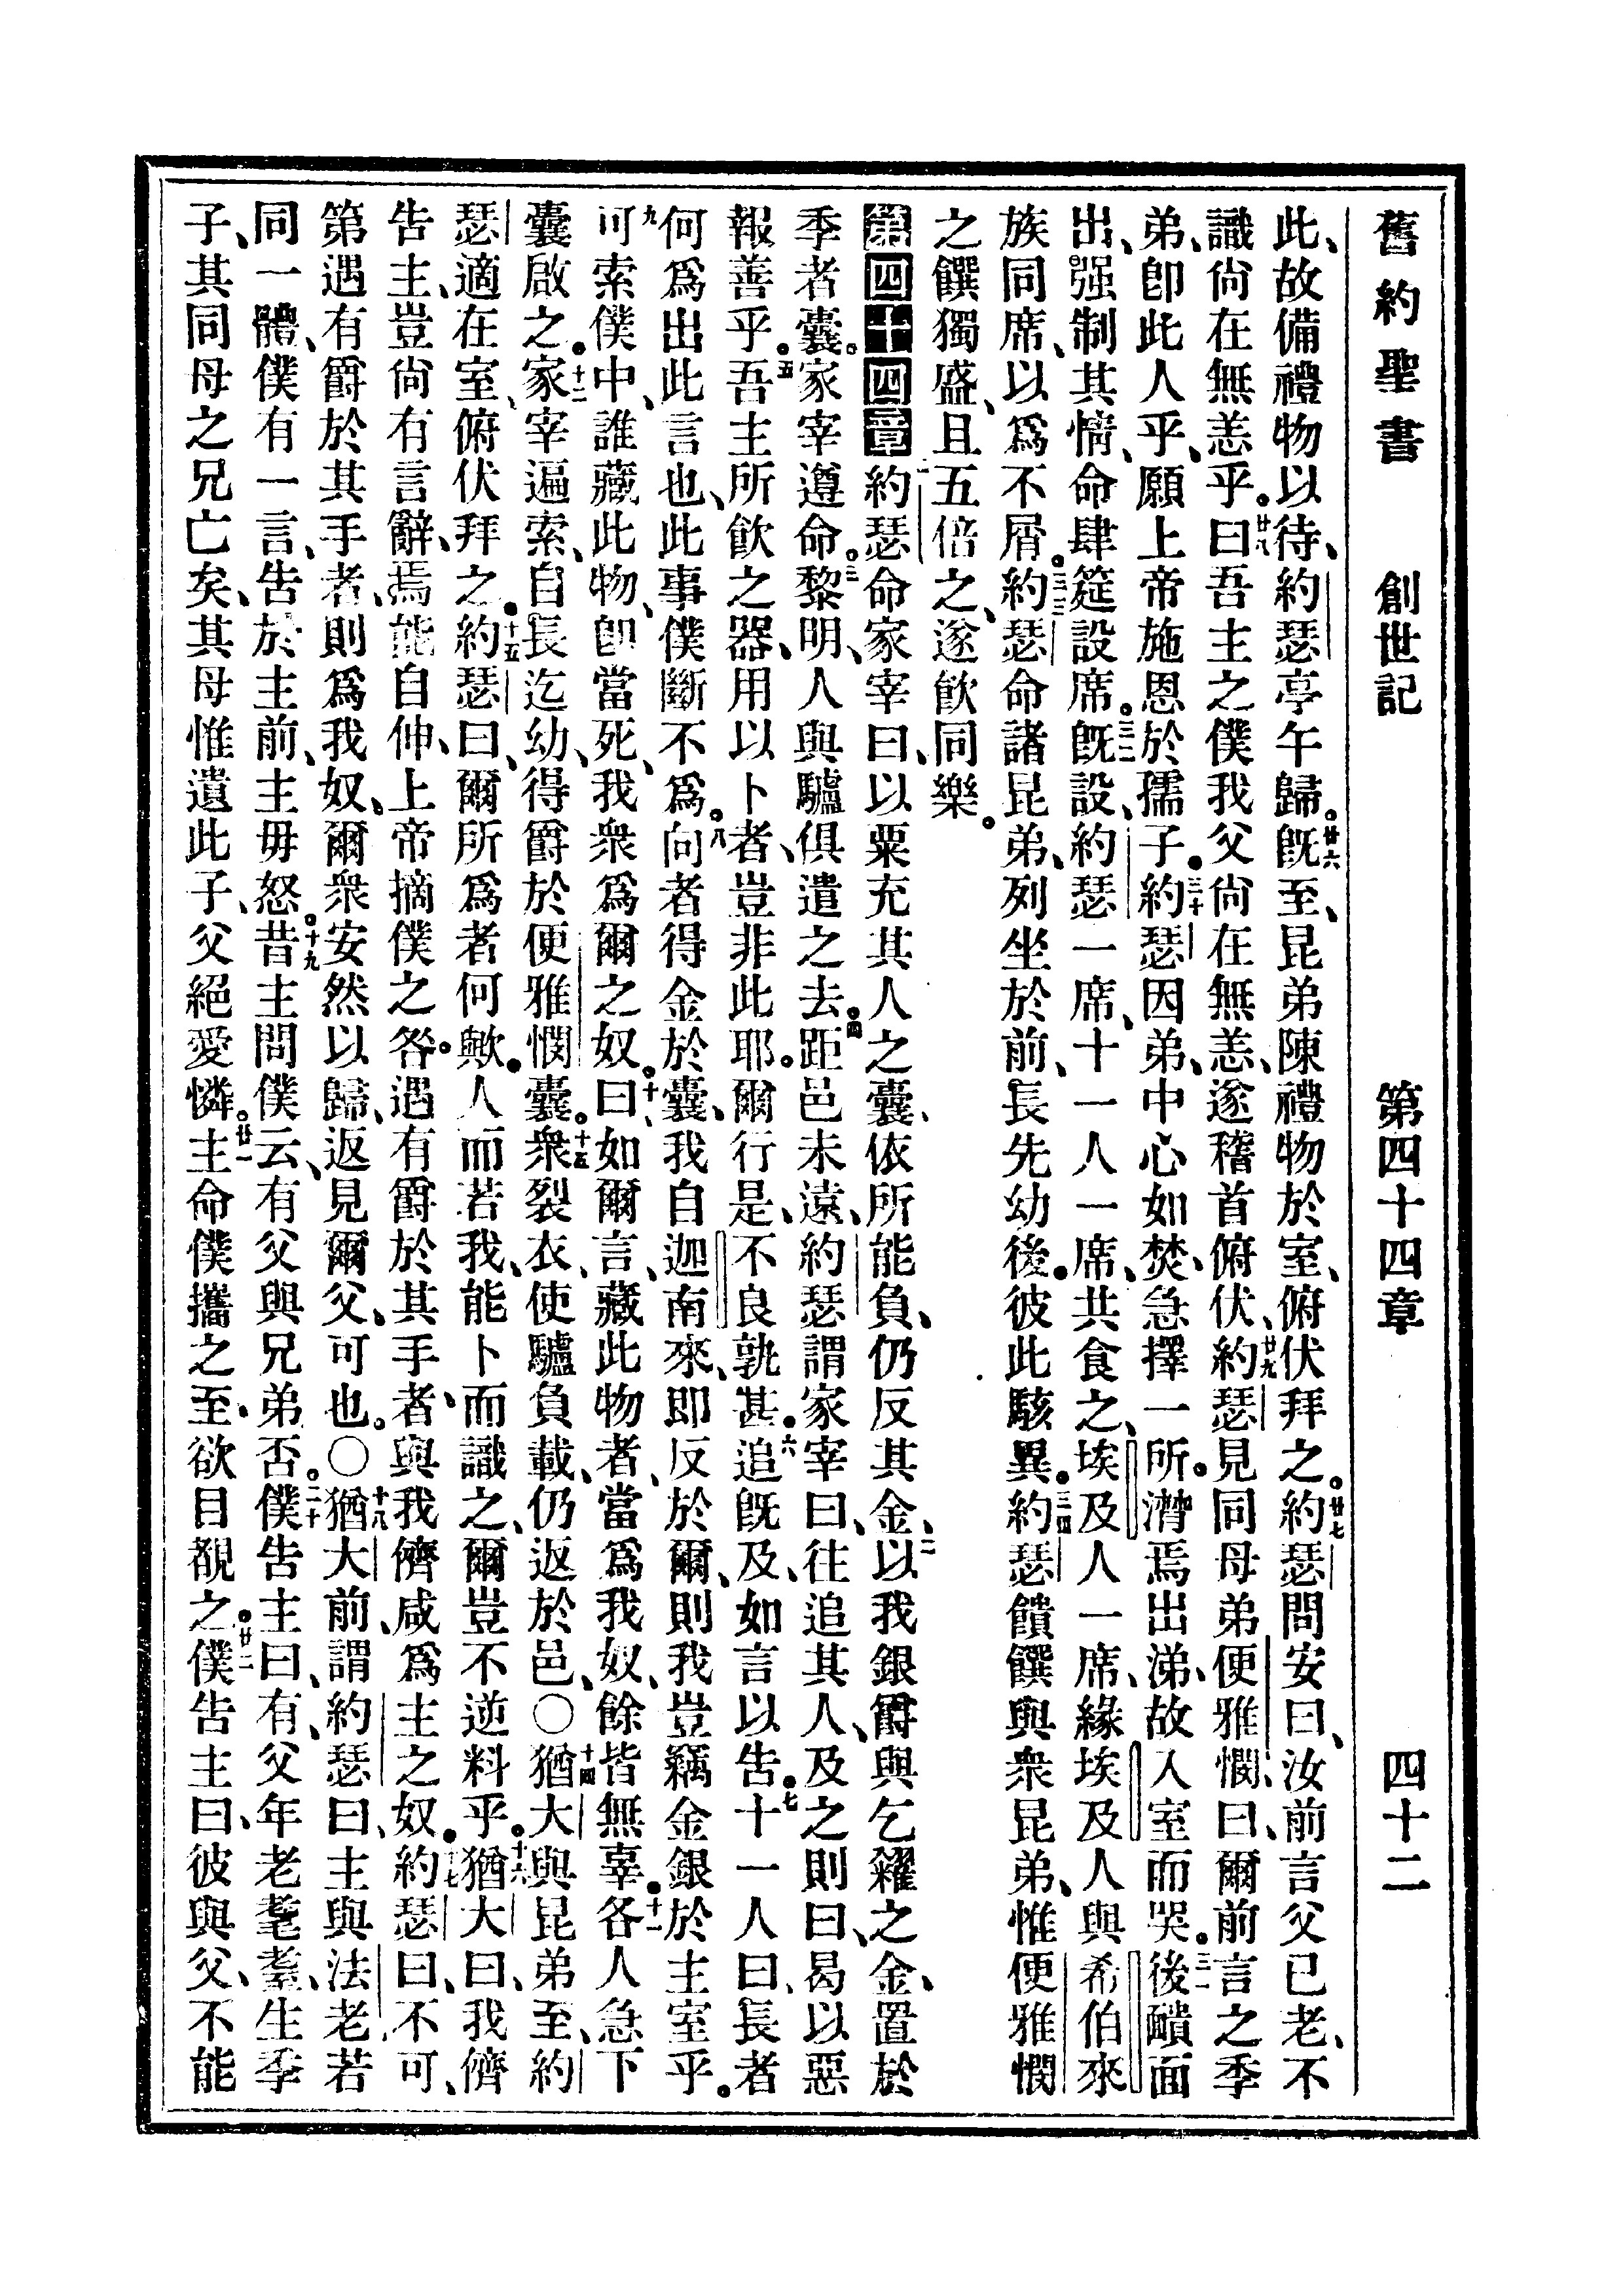 舊約聖書 創世記 第四十四章 四十二
此、故備禮物以待、約瑟亭午歸。廿六旣至、昆弟陳禮物於室、俯伏拜之。廿七約瑟問安曰、汝前言父已老、不
識尙在無恙乎。廿八曰吾主之僕我父尙在無恙、遂稽首俯伏、廿九約瑟見同母弟便雅憫、曰、爾前言之季
弟、卽此人乎、願上帝施恩於孺子。三十約瑟因弟、中心如焚、急擇一所。潸焉出涕、故入室而哭。三一後靧面
出、强制其情、命肆筵設席。三二旣設、約瑟一席、十一人一席、共食之、埃及人一席、緣埃及人與希伯來
族同席、以爲不屑。三三約瑟命諸昆弟、列坐於前、長先幼後。彼此駭異。三四約瑟饋饌與衆昆弟、惟便雅憫
之饌獨盛、且五倍之、遂飮同樂。
第四十四章 一約瑟命家宰曰、以粟充其人之囊、依所能負、仍反其金、二以我銀爵與乞糴之金、置於
季者囊。家宰遵命。三黎明、人與驢俱遣之去。四距邑未遠、約瑟謂家宰曰、往追其人、及之則曰、曷以惡
報善乎。五吾主所飮之器、用以卜者、豈非此耶。爾行是、不良孰甚。六追旣及、如言以告。七十一人曰、長者
何爲出此言也、此事僕斷不爲。八向者得金於囊、我自迦南來、即反於爾、則我豈竊金銀於主室乎。
九可索僕中、誰藏此物、卽當死、我衆爲爾之奴。十曰、如爾言、藏此物者、當爲我奴、餘皆無辜。十一各人急下
囊啟之。十二家宰遍索、自長迄幼、得爵於便雅憫囊。十三衆裂衣、使驢負載、仍返於邑、〇十四猶大與昆弟至、約
瑟適在室、俯伏拜之。十五約瑟曰、爾所爲者何歟。人而若我、能卜而識之、爾豈不逆料乎。十六猶大曰、我儕
告主、豈尙有言辭、焉能自伸、上帝摘僕之咎。遇有爵於其手者、與我儕咸爲主之奴。十七約瑟曰、不可、
第遇有爵於其手者、則爲我奴、爾衆安然以歸、返見爾父、可也。〇十八猶大前、謂約瑟曰、主與法老若
同一體、僕有一言、告於主前、主毋怒。十九昔主問僕云、有父與兄弟否。二十僕告主曰、有、父年老耄耋、生季
子、其同母之兄亡矣、其母惟遺此子、父絕愛憐。廿一主命僕攜之至、欲目覩之。廿二僕告主曰、彼與父、不能